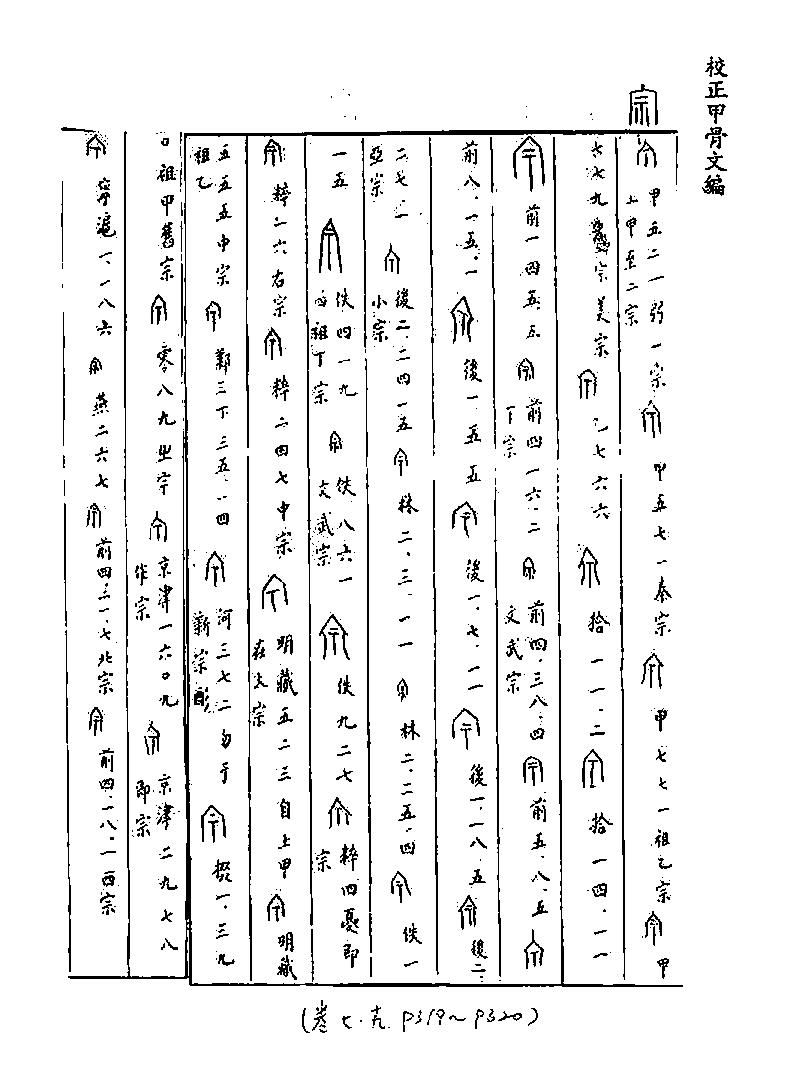 校正甲骨文編
宗
甲五二一弜一宗
上甲至二宗
甲五七一秦宗
甲七七一祖乙宗
甲
七七九
宗美宗
乙七六六
拾一一.二
拾一四.一一
前一四五.五
前四一六.二
丁宗
前四.三八.四
文武宗
前五.八.五
前八.一五.一
後一.五五
後一.七.一一
後一.一八.五
後二.
二七.一
亞宗
後二.二四一五
小宗
林二.三.一一
林二.二五.四
佚一
一五
佚四一九
祖丁宗
佚八六一
文武宗
佚九二七
粹四
即
宗
粹一六右宗
粹二四七中宗
明藏五二三自上甲
在大宗
明藏
五五五中宗
祖乙
鄴三下三五.一四
河三七二
于
新宗
掇一.三九
〇祖甲舊宗
零八九
宗
京津一六〇九
作宗
京津二九七八
即宗
寧滬一.一八六
燕二六七
前四三一.七北宗
前四.一八.一西宗
(卷七.
P319~P320)